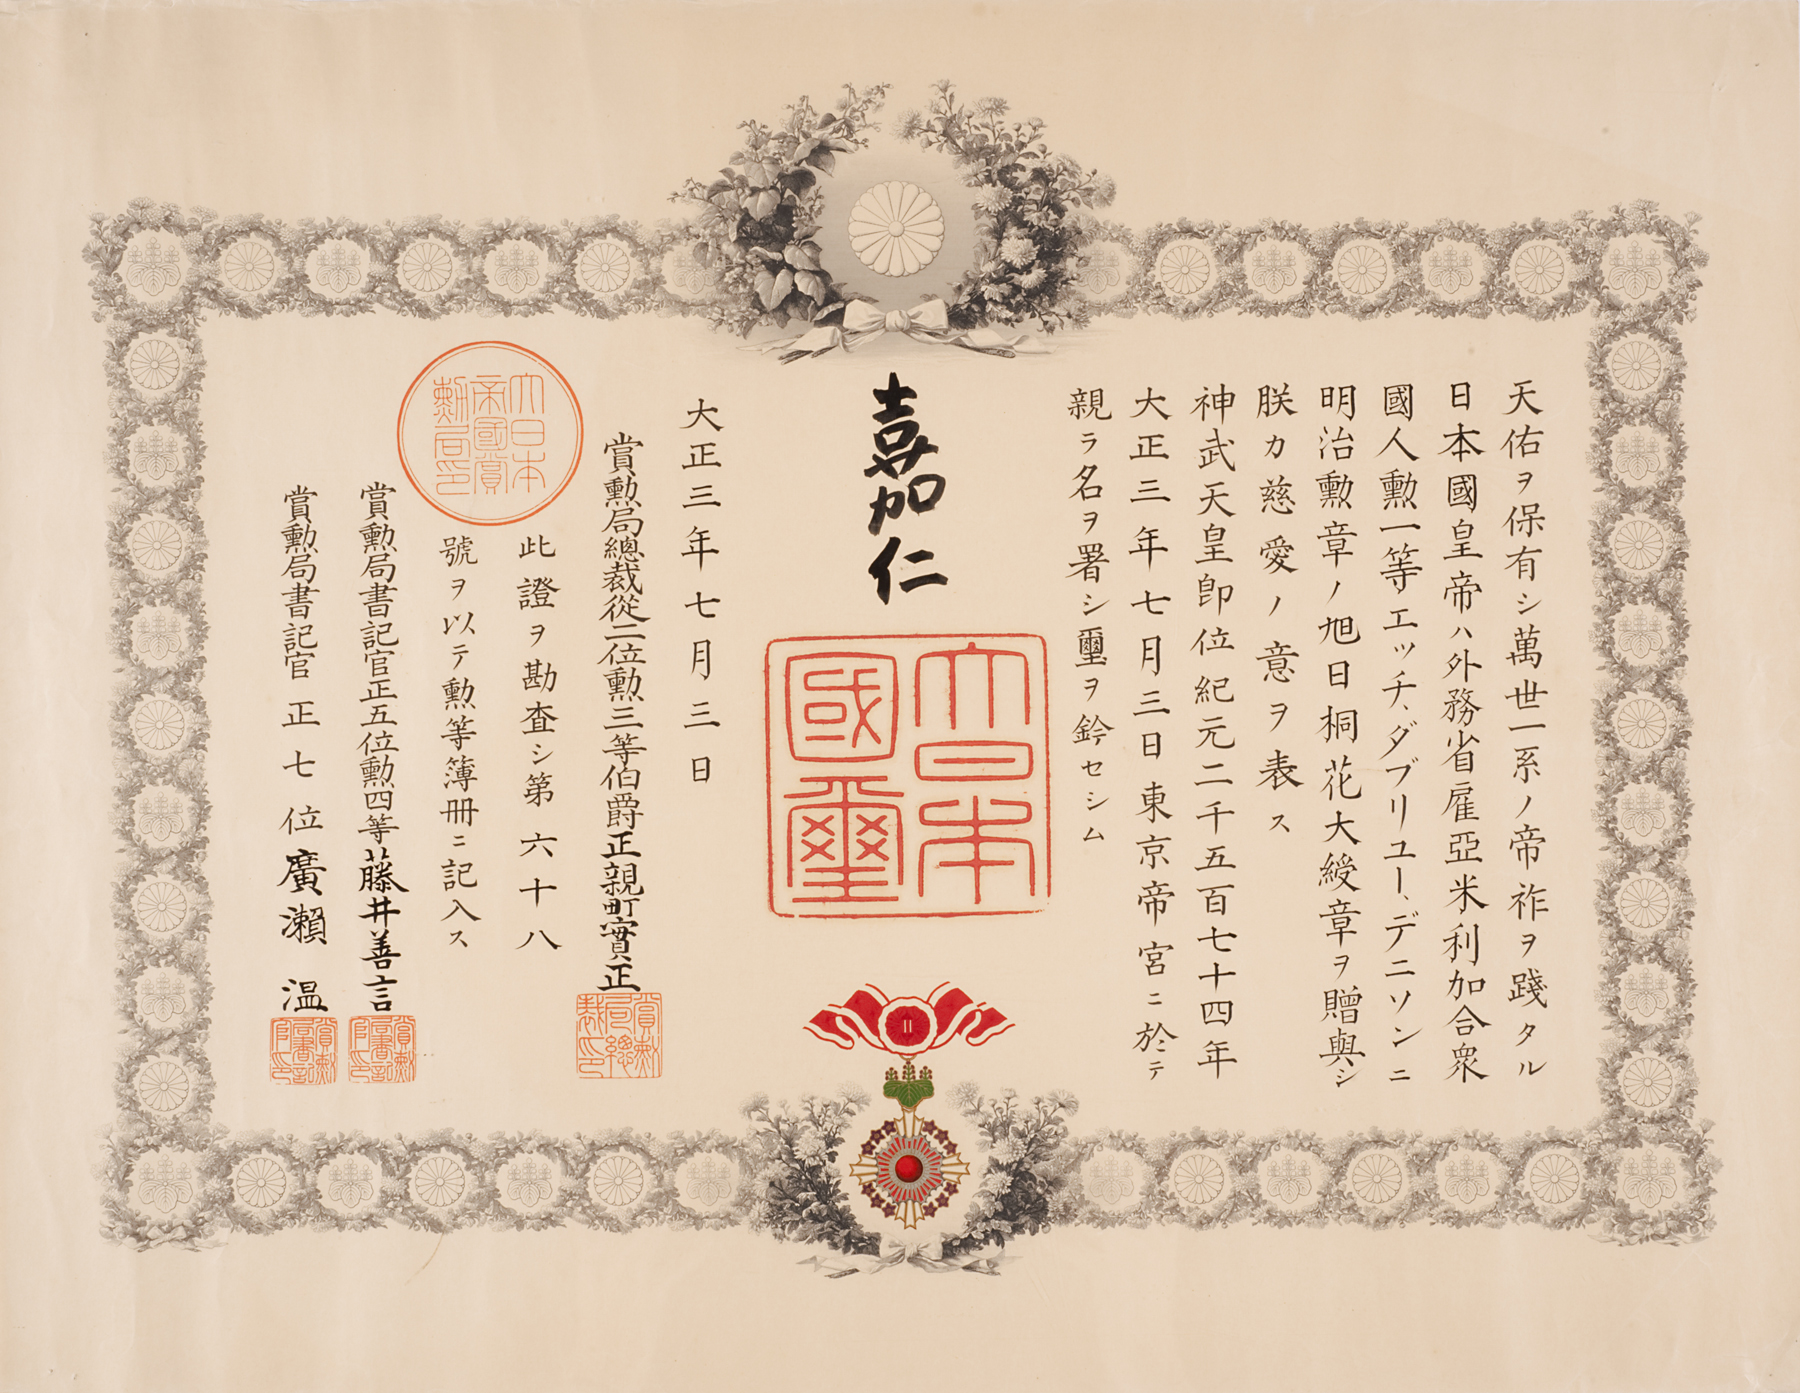 天佑ヲ保有シ萬世一系ノ帝祚ヲ踐タル
日本國皇帝ハ外務省雇亞米利加合衆
國人勲一等エッチ、ダブリユー、デニソンニ
明治勲章ノ旭日桐花大綬章ヲ贈與シ
朕カ慈愛ノ意ヲ表ス
神武天皇卽位紀元二千五百七十四年
大正三年七月三日東京帝宮ニ於テ
親ラ名ヲ署シ璽ヲ鈐セシム
嘉仁
大日本
國璽
大正三年七月三日
賞勲局總裁從二位勲三等伯爵正親町實正
賞勲
局總
裁印
此證ヲ勘査シ第六十八
號ヲ以テ勲等簿冊ニ記入ス
大日本
帝國賞
勲局印
賞勲局書記官正五位勲四等藤井善言
賞勲
局書記
官印
賞勲局書記官正七位廣瀨温
賞勲
局書記
官印